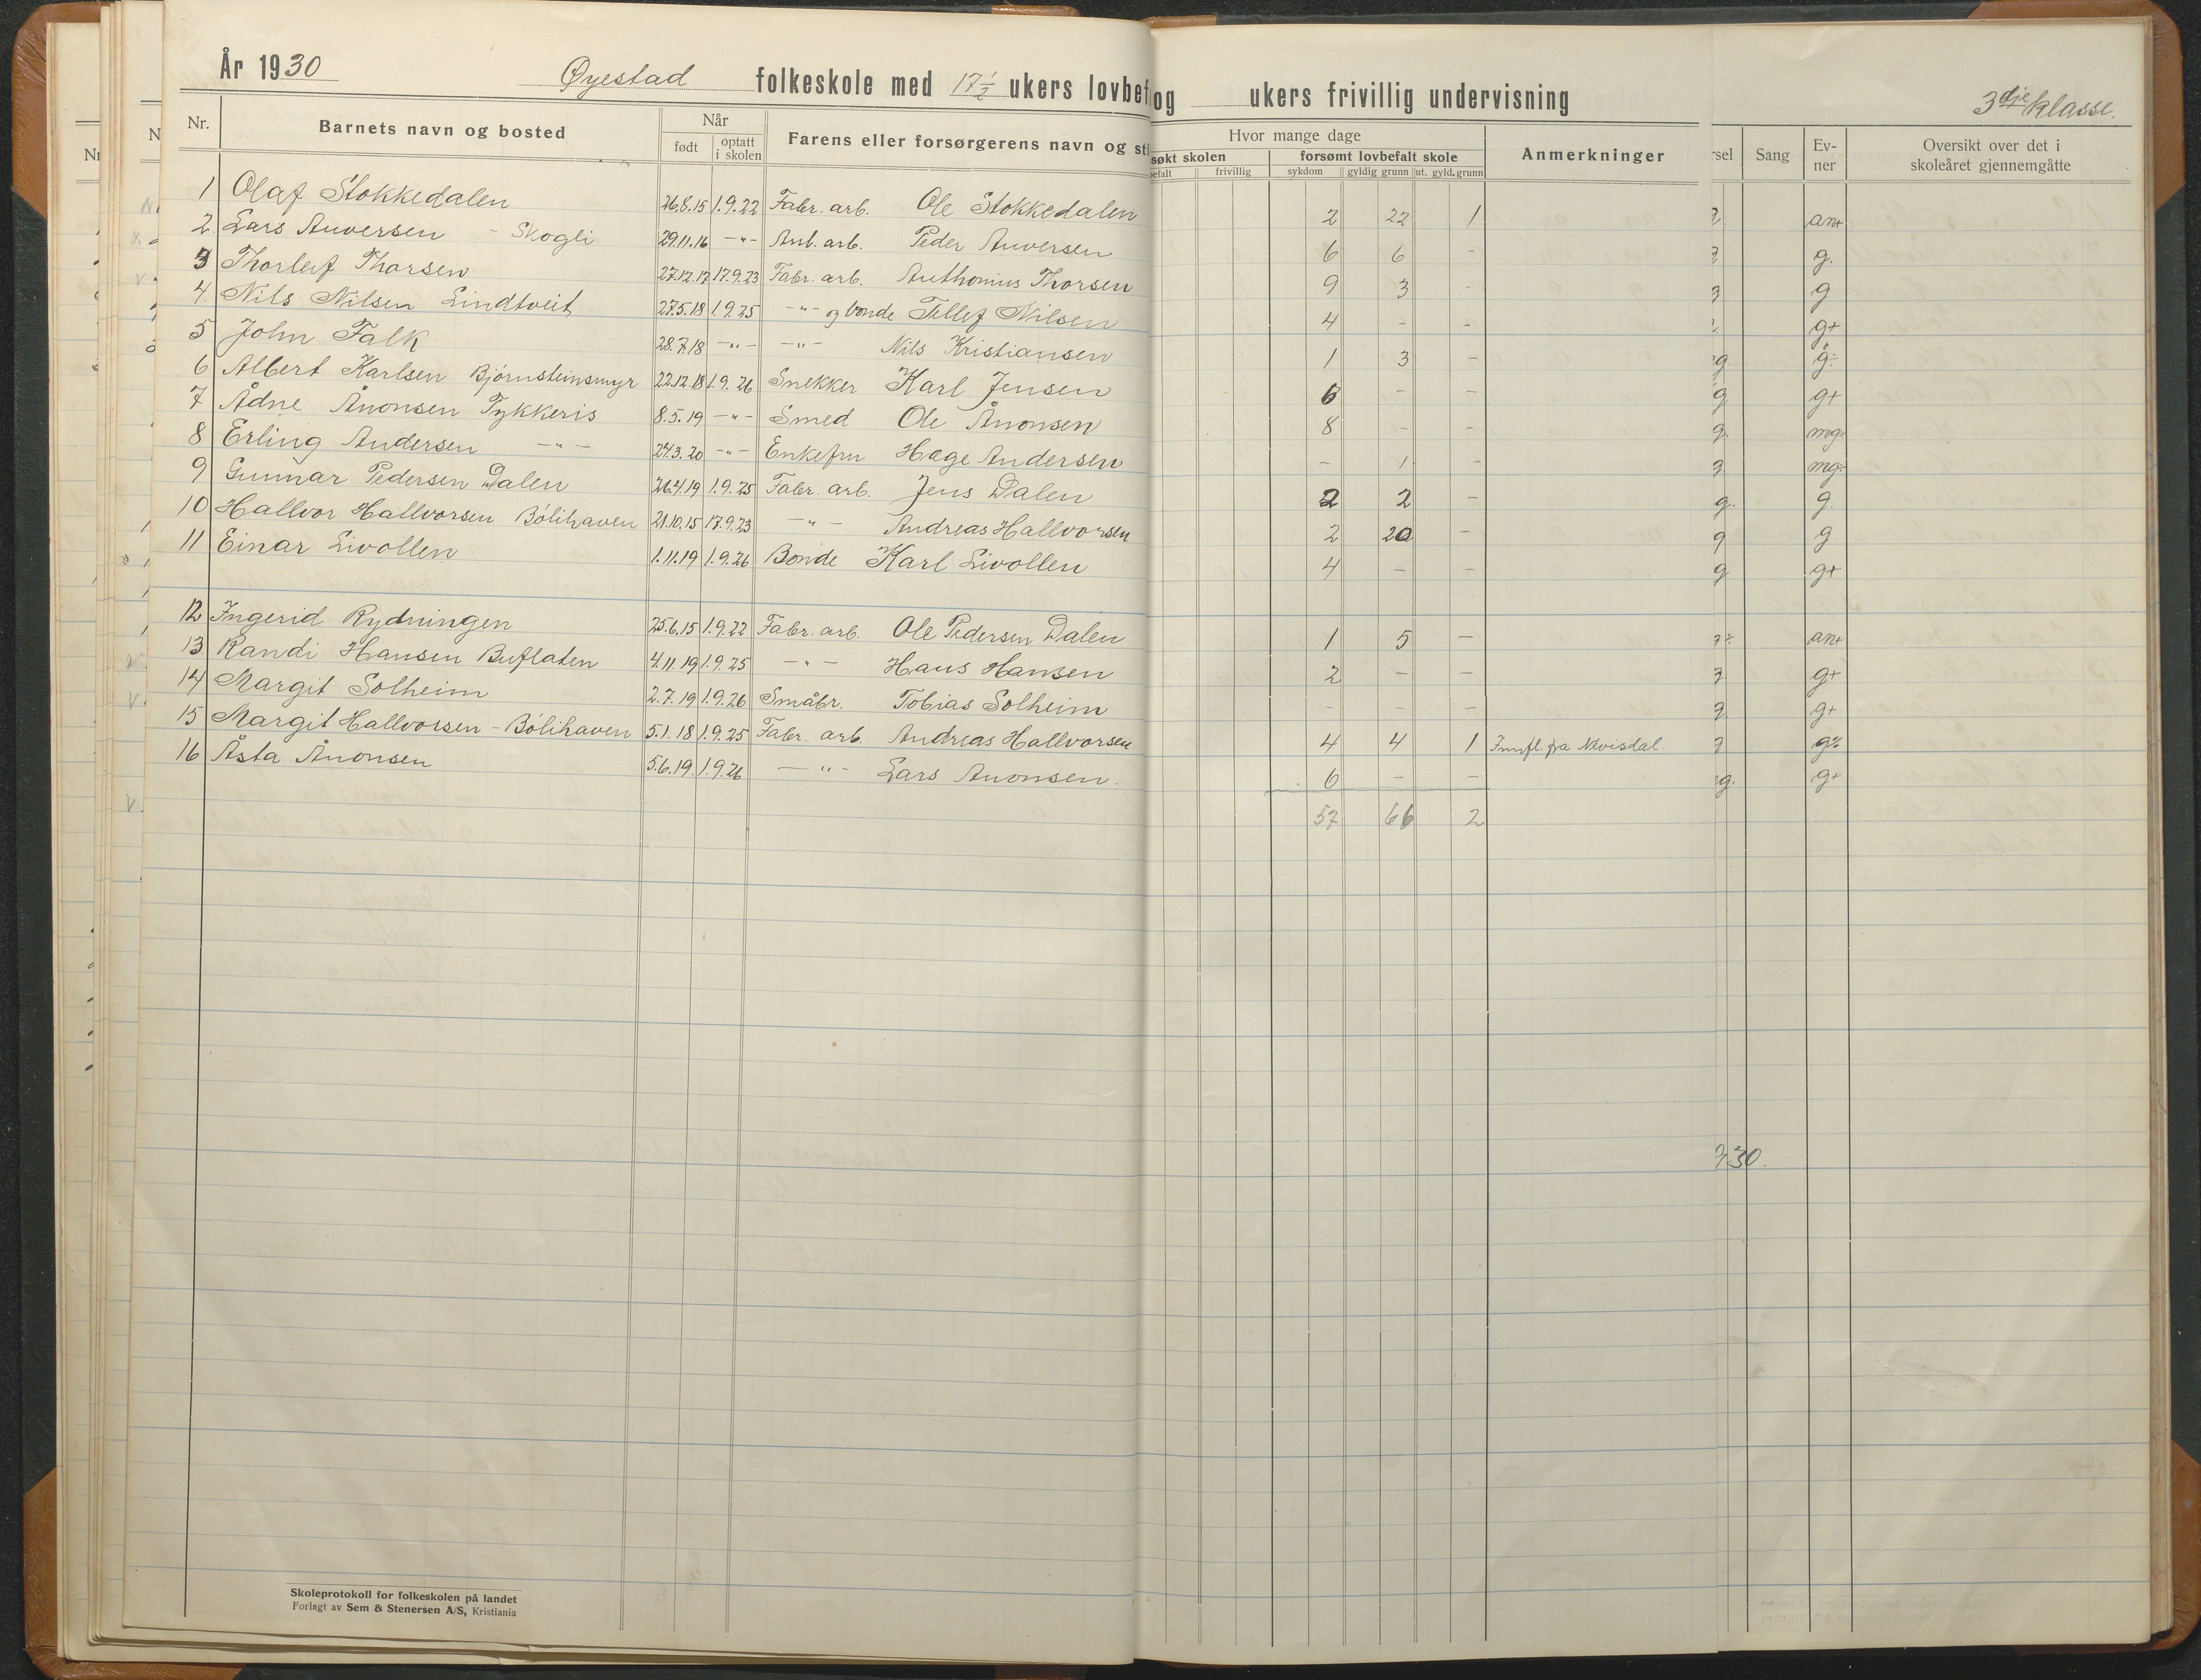 År 1930 Øyestad folkeskole med 17 1/2 ukers lovbef og ukers frivillig undervisning
3dje klasse.
Nr. Barnets navn og bosted Når Farens eller forsørgerens navn og sti
født optatt i skolen
Hvor mange dage Anmerkninger
søkt skolen forsømt lovbefalt skole
befalt frivillig sykdom gyldig grunn ut. gyld. grunn
rsel Sang Ev-ner Oversikt over det i skoleåret gjennemgåtte
1 Olaf Stokkedalen 26.8.15 1.9.22 Fabr. arb. Ole Stokkedalen 2 22 1 an+
2. Lars Auversen - Skogli 29.11.16 -"- Anl. arb. Peder Auversen 6 6 - g.
3 Thorleif Thorsen 27.12.17 17.9.23 Fabr. arb. Anthonius Thorsen 9 3 - g
4. Nils Nilsen Lindtveit 27.5.18 1.9.25 -"- og bonde Tellef Nilsen 4 - - g+
5 John Falk 28.7.18 -"- -"- Nils Kristiansen 1 3 - g. g÷
6 Albert Karlsen Bjørnsteinsmyr 22.12.18 1.9.26 Snekker Karl Jensen 6 - - g g+
7 Ådne Ånonsen Tykkeris 8.5.19 -"- Smed Ole Ånonsen 8 - - g. mg÷
8 Erling Andersen -"- 24.3.20 -"- Enkefru Hæge Andersen - 1 - mg÷
9 Gunnar Pedersen Dalen 26.4.19 1.9.25 Fabr. arb. Jens Dalen 2 2 - g. g
10 Hallvor Hallvorsen Bólihaven 21.10.15 17.9.23 -"- Andreas Hallvorsen 2 20 - g g
11 Einar Livollen 1.11.19 1.9.26 Bonde Karl Livollen 4 - - g g+
12 Ingerid Rydningen 25.6.15 1.9.22 Fabr. arb. Ole Pedersen Dalen 1 5 - an+
13 Randi Hansen Buflaten 4.11.19 1.9.25 -"- Hans Hansen 2 - - g+
14 Margit Solheim 2.7.19 1.9.26 Småbr. Tobias Solheim - - - g+
15 Margit Hallvorsen - Bólihaven 5.1.18 1.9.25 Fabr. arb. Andreas Hallvorsen 4 4 1 Innfl. fra Nævisdal. g÷
16 Åsta Ånonsen 5.6.19. 1.9.26 -"- Lars Anonsen. 6 - - g. g+
57 66 2
30.
Skoleprotokoll for folkeskolen på landet
Forlagt av Sem & Stenersen A/S, Kristiania